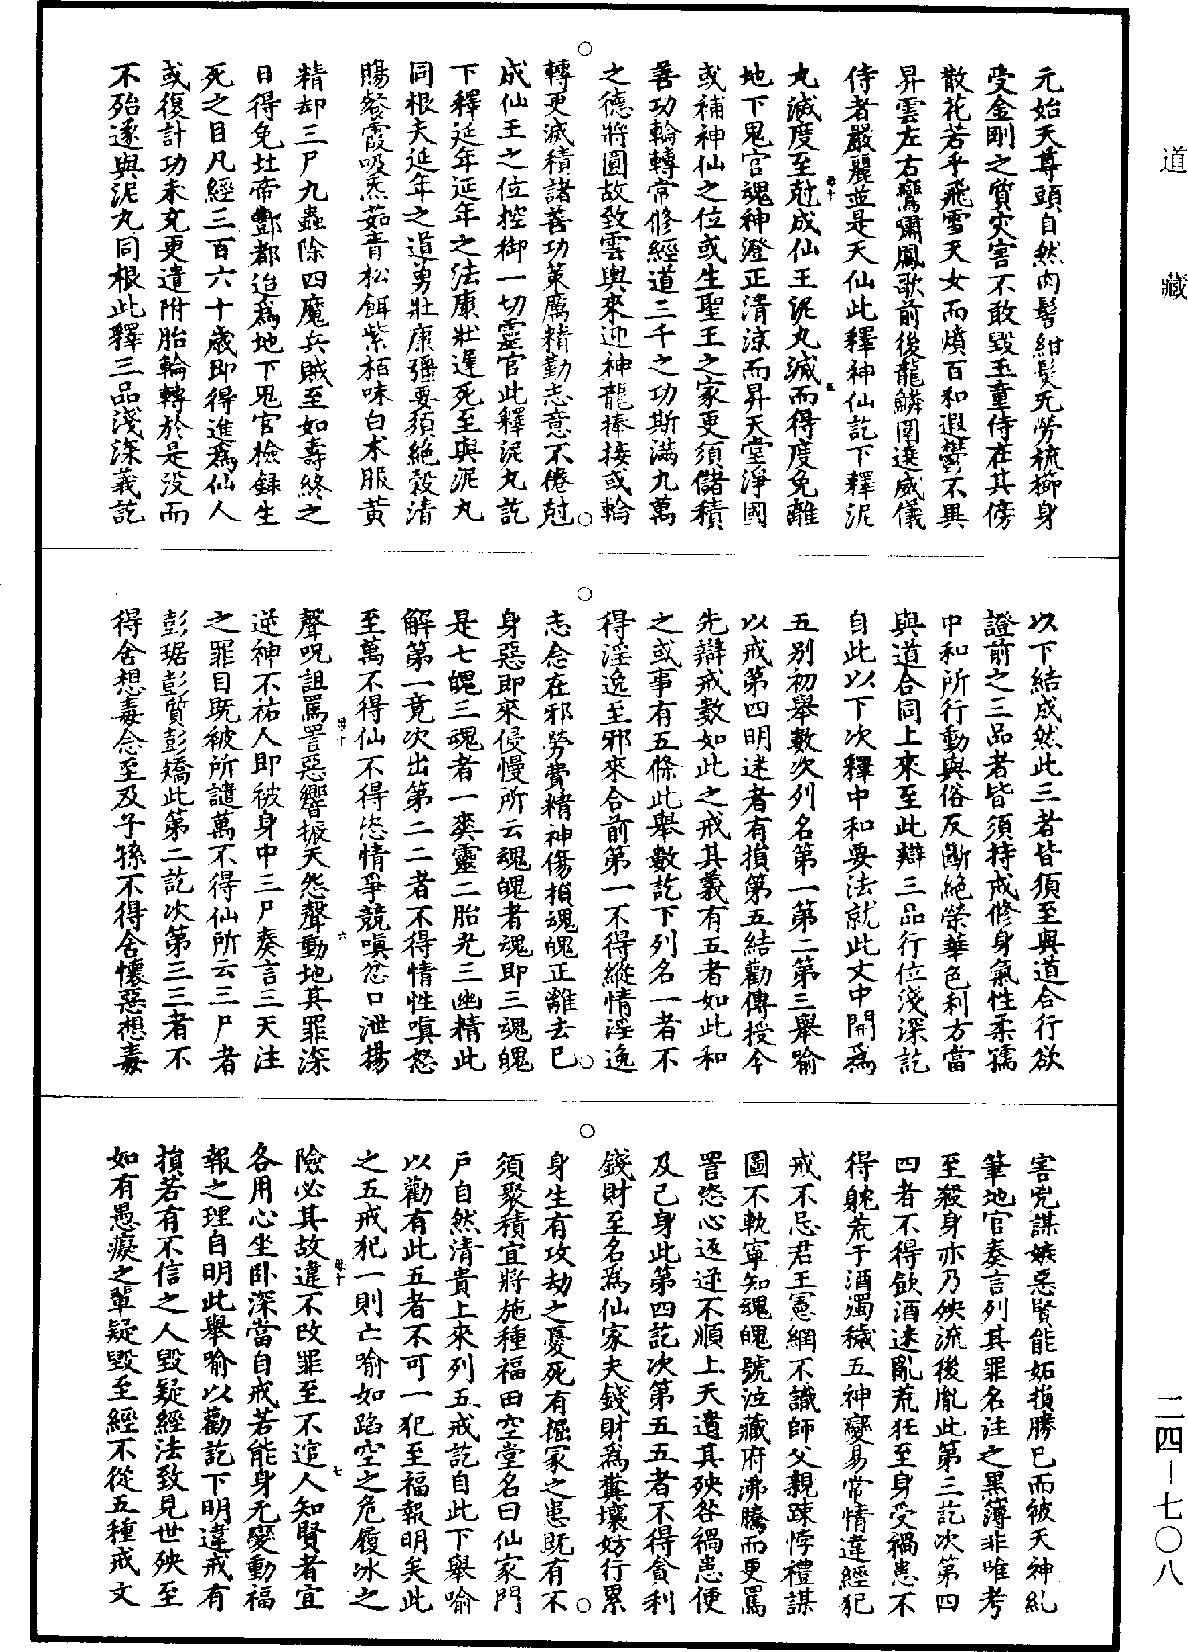 道藏
元始天尊頭自然肉髻紺髮无勞梳櫛身
受金剛之質灾害不敢毀玉童侍在其傍
散花若乎飛雪天女而燌百和遐欝不異
昇雲左右鸞嘯鳳歌前後龍鱗圍遶威儀
侍者嚴麗並是天仙此釋神仙訖下釋泥
丸滅度至尅成仙王泥丸滅而得度免離
地下鬼官魂神澄正清涼而昇天堂淨國
或補神仙之位或生聖王之家更須儲積
善功輪轉常修經道三千之功斯滿九萬
之德將圓故致雲輿來迎神龍捧接或輪
轉更滅積諸善功策厲精勤志意不倦尅
成仙王之位控御一切靈官此釋泥丸訖
下釋延年延年之法康壯遲死至與泥丸
同根夫延年之道勇壯康彊要須絕穀清
腸餐霞吸炁茹青松餌紫栢味白术服黃
精却三尸九蟲除四魔兵賊至如壽終之
日得免北帝酆都迨為地下鬼官檢錄生
死之目凡經三百六十歲即得進為仙人
或復計功未充更遣附胎輪轉於是没而
不殆遂與泥丸同根此釋三品淺深義訖
以下結成然此三者皆須至與道合行欲
證前之三品者皆須持戒修身氣性柔孺
中和所行動與俗反斷絕榮華色利方當
與道合同上來至此辯三品行位淺深訖
自此以下次釋中和要法就此文中開為
五別初舉數次列名第一第二第三舉喻
以戒第四明迷者有損第五結勸傳授今
先辯戒數如此之戒其義有五者如此和
之或事有五條此舉數訖下列名一者不
得淫逸至邪來合前第一不得縱情淫逸
志念在邪勞費精神傷損魂魄正離去已
身惡即來侵慢所云魂魄者魂即三魂魄
是七魄三魂者一爽靈二胎光三幽精此
解第一竟次出第二二者不得情性嗔怒
至萬不得仙不得恣情爭競嗔忿口泄揚
聲呪詛罵詈惡響振天怨聲動地其罪深
逆神不祐人即被身中三尸奏言三天注
之罪目既被所譴萬不得仙所云三尸者
彭琚彭質彭矯此第二訖次第三三者不
得舍想毒念至及子孫不得舍懷惡想毒
害兇謀嫉惡賢能妬損勝已而被天神糺
筆地官奏言列其罪名注之黑簿非唯考
至殺身亦乃殃流後胤此第三訖次第四
四者不得飲酒迷亂荒狂至身受禍患不
得躭荒于酒濁穢五神變易常情違經犯
戒不忌君王憲綱不識師父親踈悖禮謀
圖不軌寧知魂魄號泣藏府沸騰而更罵
詈恣心返逆不順上天遺其殃咎禍患便
及己身此第四訖次第五五者不得貪利
錢財至名為仙家夫錢財為糞壤妨行累
身生有攻劫之憂死有掘冢之患既有不
須聚積宜將施種福田空堂名曰仙家門
戶自然清貴上來列五戒訖自此下舉喻
以勸有此五者不可一犯至福報明矣此
之五戒犯一則亡喻如蹈空之危履冰之
險必其故違不改罪至不逭人知賢者宜
各用心坐卧深當自戒若能身无變動福
報之理自明此舉喻以勸訖下明違戒有
損若有不信之人毀疑經法致見世殃至
如有愚癡之輩疑毀至經不從五種戒文
二四—七〇八